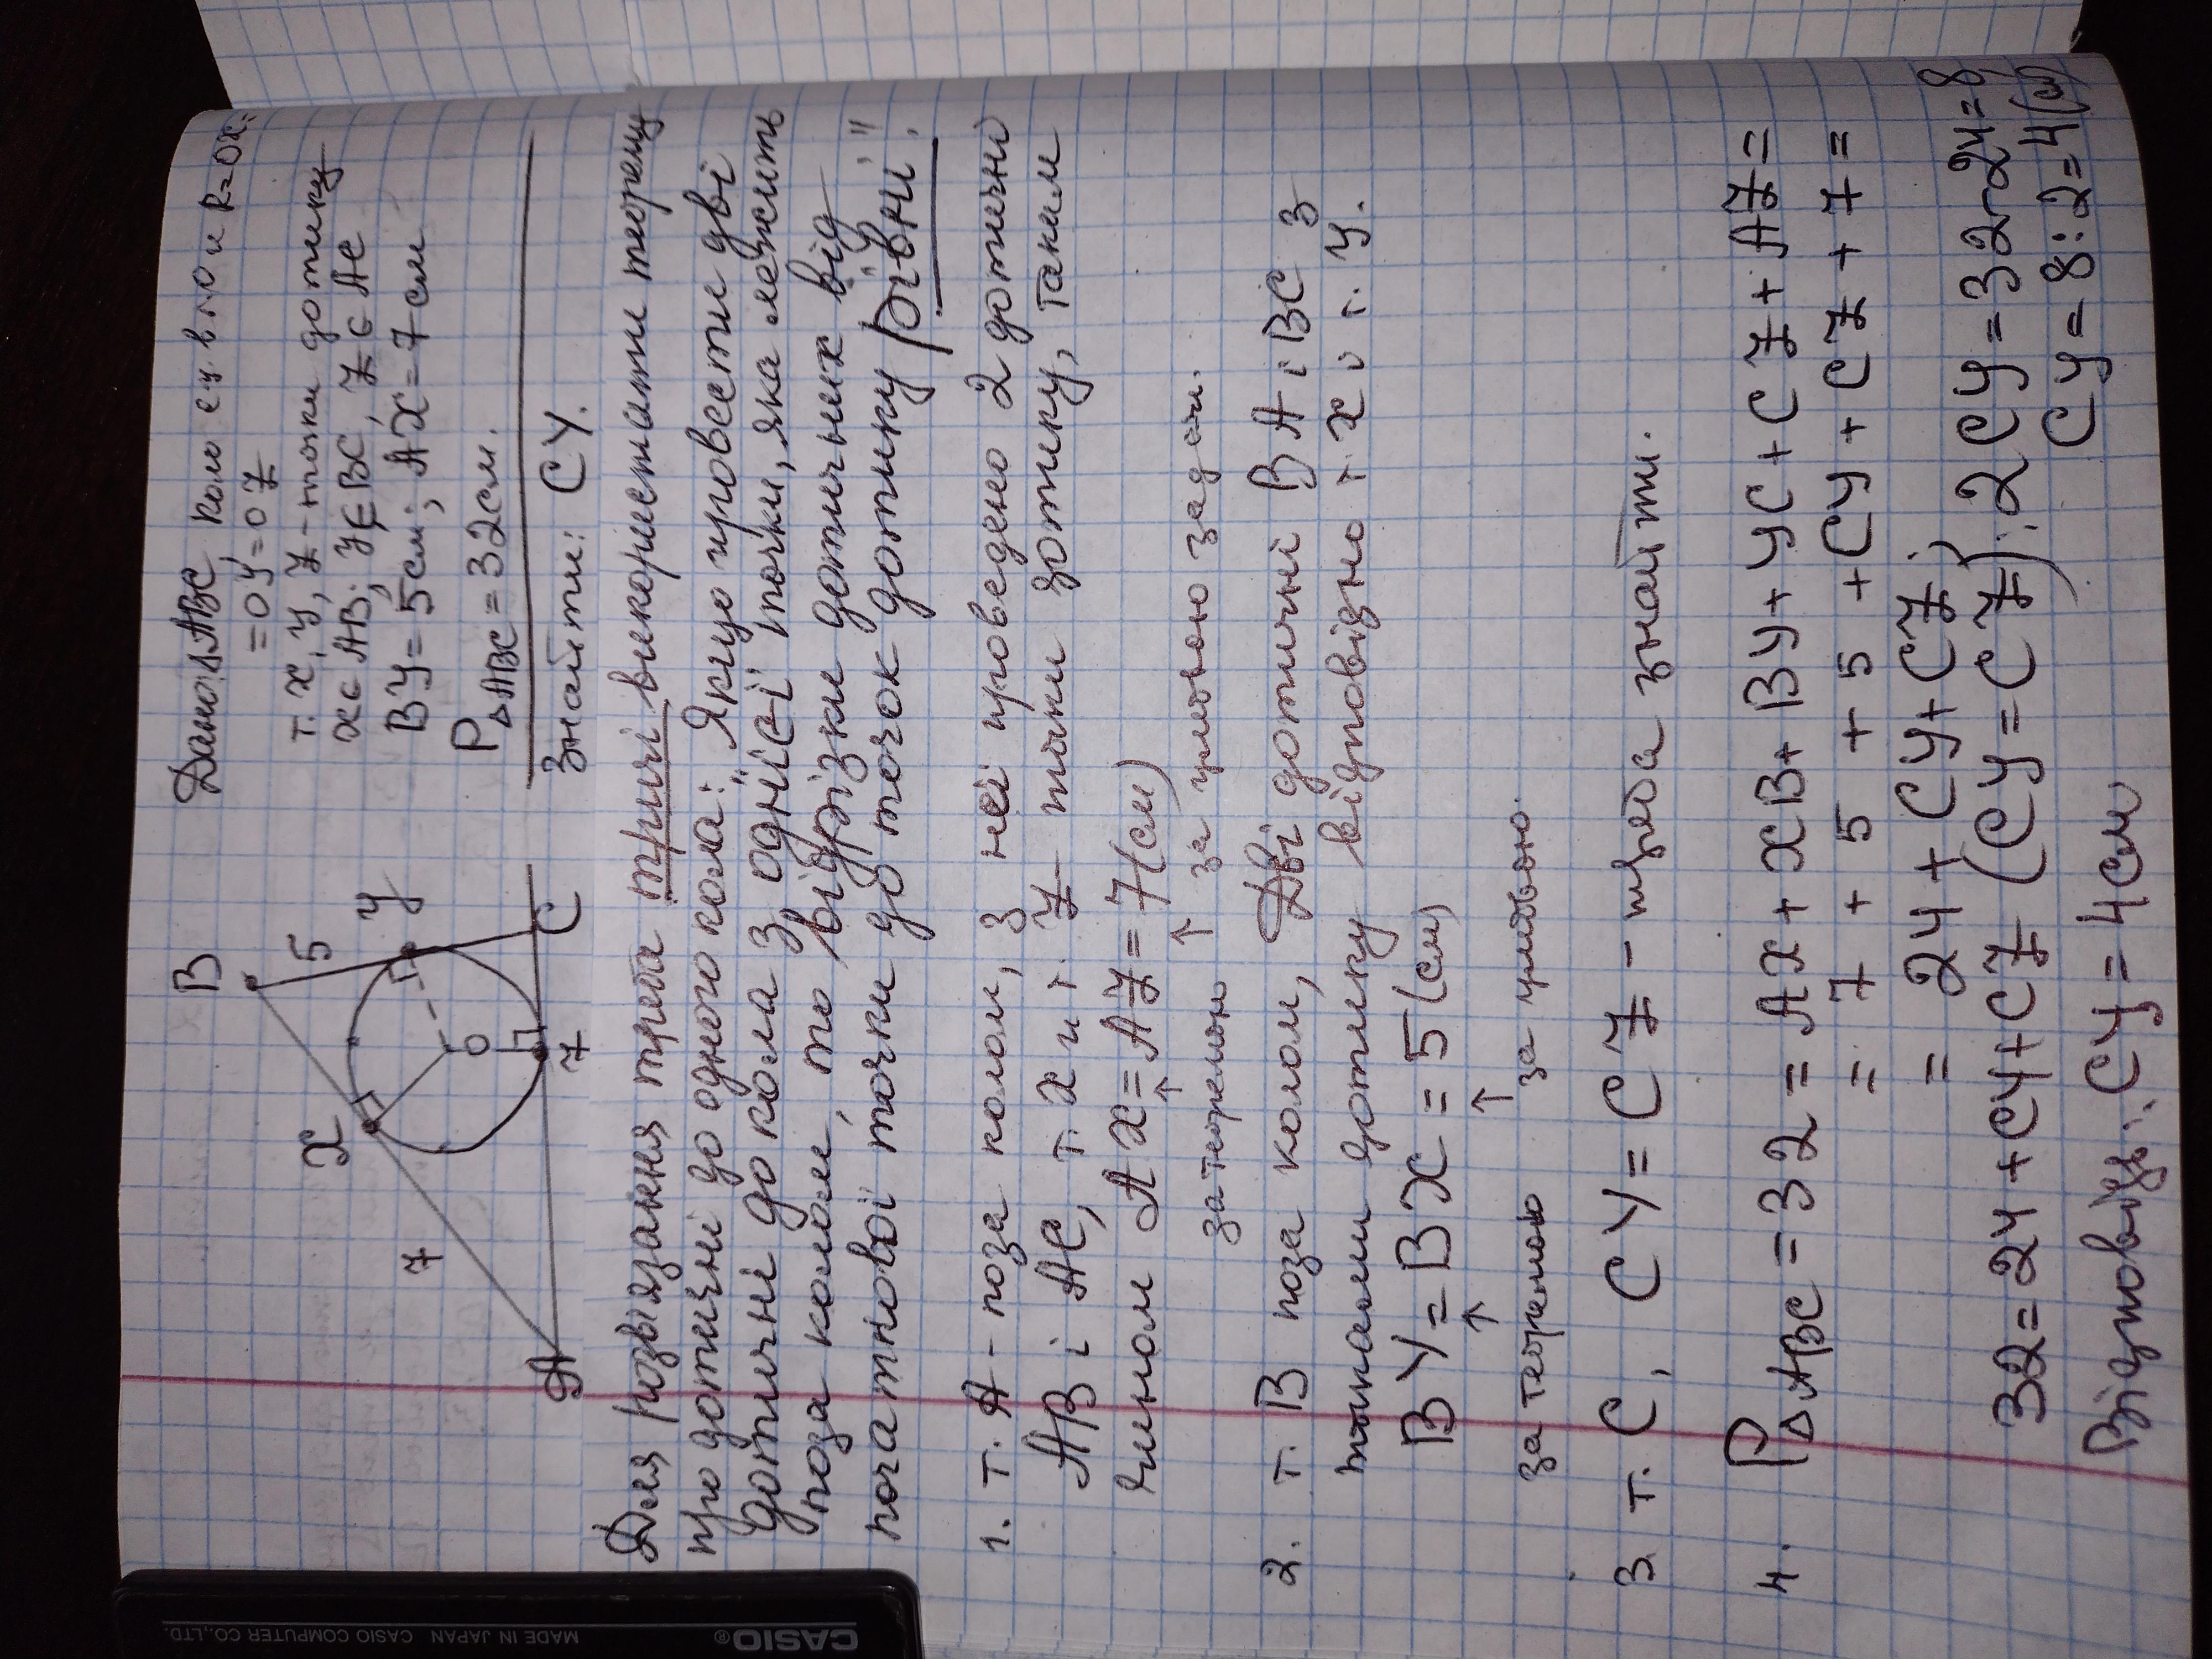 B
5
X
Y
O
7
Z
A
C
Дано: ΔABC, коло с ц. в т. О и R=OX=
=OY=OZ
т. X, Y, Z - точки дотику
X∈AB; Y∈BC, Z∈AC
BY=5см; AX=7см
P△ABC=32см.
Знайти: CY.
Для розв'язання треба тричі використати теорему
про дотичні до одного кола: "Якщо провести дві
дотичні до кола з однієї точки, яка лежить
поза колом, то відрізки дотичних від
початкової точки до точок дотику рівні".
1. т. A - поза колом, з неї проведено 2 дотични
AB і AC, т. X и т. Z - точки дотику, таким
чином AX = AZ = 7(см)
↑ ↑
за теоремою за умовою задачі.
2. т. B поза колом, Дві дотичні BA і BC з
точками дотику відповідно т. X і т. Y.
BY = BX = 5(см)
↑ ↑
за теоремою за умовою.
3 т. C, CY = CZ - треба знайти.
4. P△ABC = 32 = AX + XB + BY + YC + CZ + AZ =
= 7 + 5 + 5 + CY + CZ + 7 =
= 24 + CY + CZ;
32 = 24 + CY + CZ (CY = CZ); 2CY = 32-24=8
CY = 8:2=4(см)
Відповідь: CY = 4см
CASIO®
MADE IN JAPAN CASIO COMPUTER CO.,LTD.